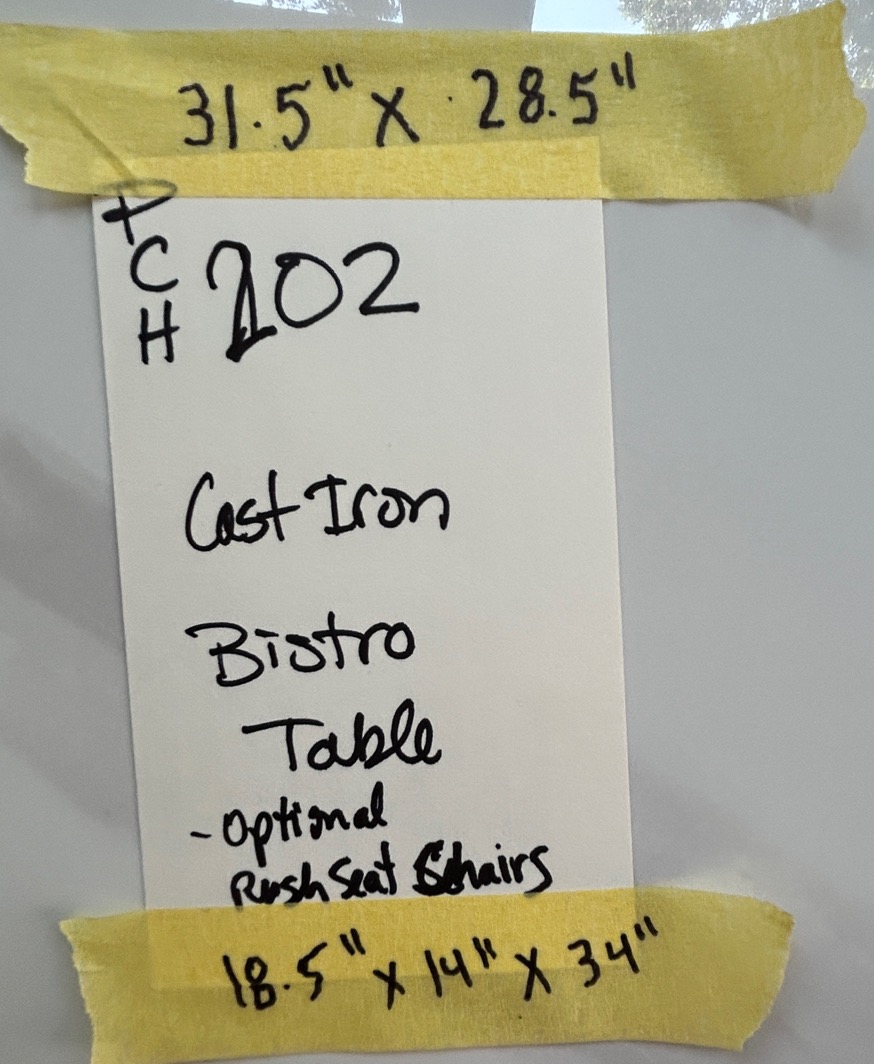 31.5" x 28.5"
PCH 202
Cast Iron
Bistro
Table
- Optional
Rush Seat Chairs
18.5" x 14" x 34"